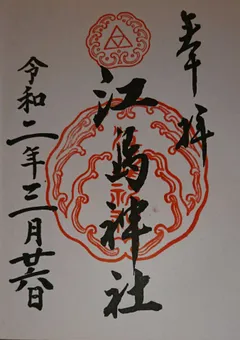 奉拝
江島神社
令和二年三月廿六日